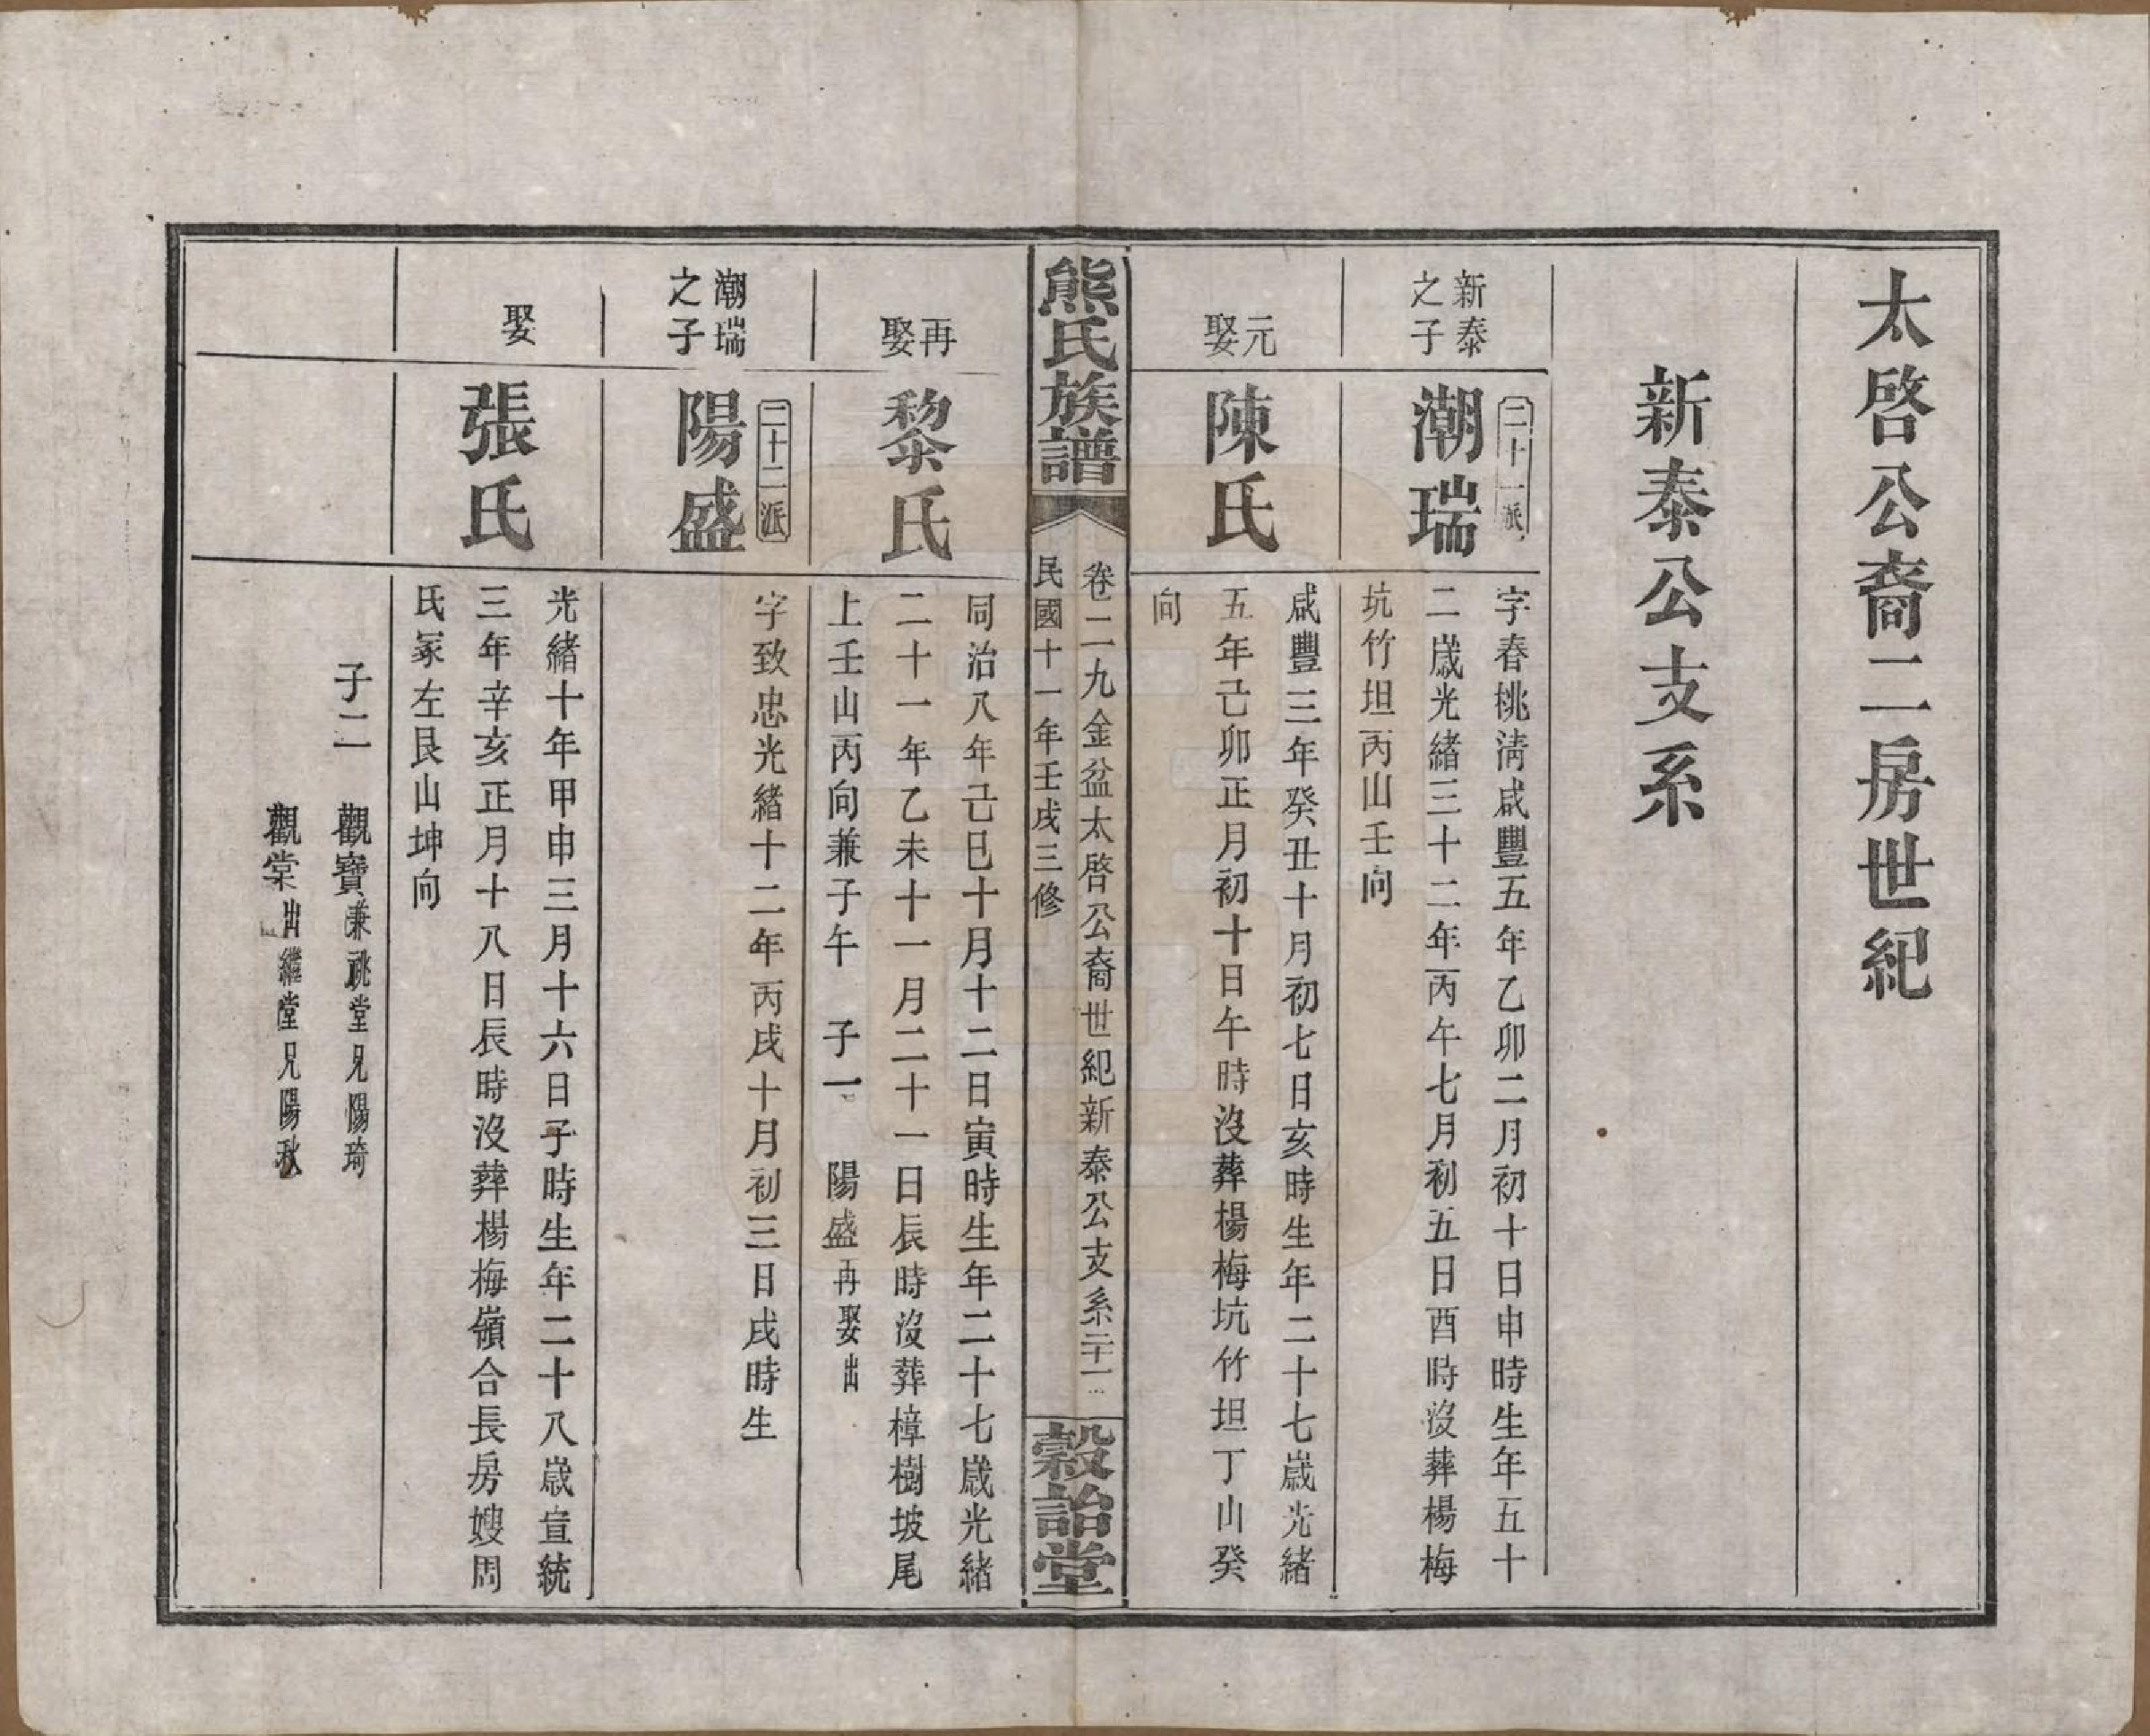 太啓公裔二房世紀
新泰公支系
新泰
之子
二十一派
潮瑞
字春桃淸咸豐五年乙卯二月初十日申時生年五十
二歲光緒三十二年丙午七月初五日酉時沒葬楊梅
坑竹坦丙山壬向
元
娶
陳氏
咸豐三年癸丑十月初七日亥時生年二十七歲光緒
五年己卯正月初十日午時沒葬楊梅坑竹坦丁山癸
向
熊氏族譜
卷二九金盆太啓公裔世紀新泰公支系二十一
民國十一年壬戌三修
穀詒堂
再
娶
黎氏
同治八年己巳十月十二日寅時生年二十七歲光緒
二十一年乙未十一月二十一日辰時沒葬樟樹坡尾
上壬山丙向兼子午 子一 陽盛再娶出
潮瑞
之子
二十二派
陽盛
字致忠光緒十二年丙戌十月初三日戌時生
娶
張氏
光緒十年甲申三月十六日子時生年二十八歲宣統
三年辛亥正月十八日辰時沒葬楊梅嶺合長房嫂周
氏冢左艮山坤向
子二 觀寶兼祧堂兄陽琦
觀棠出繼堂兄陽秋